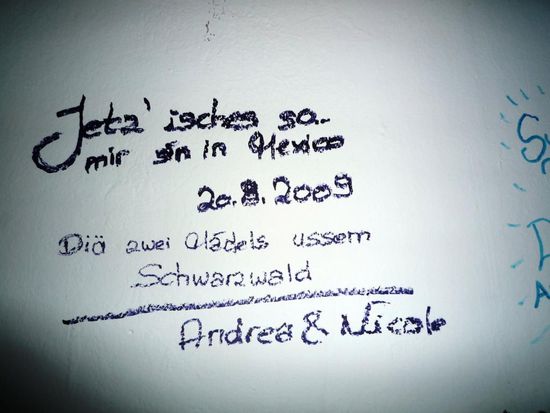 Jetz' isches so..
mir sin in Mexico
20.8.2009
Diä zwei Mädels ussem
Schwarzwald
Andrea & Nicole